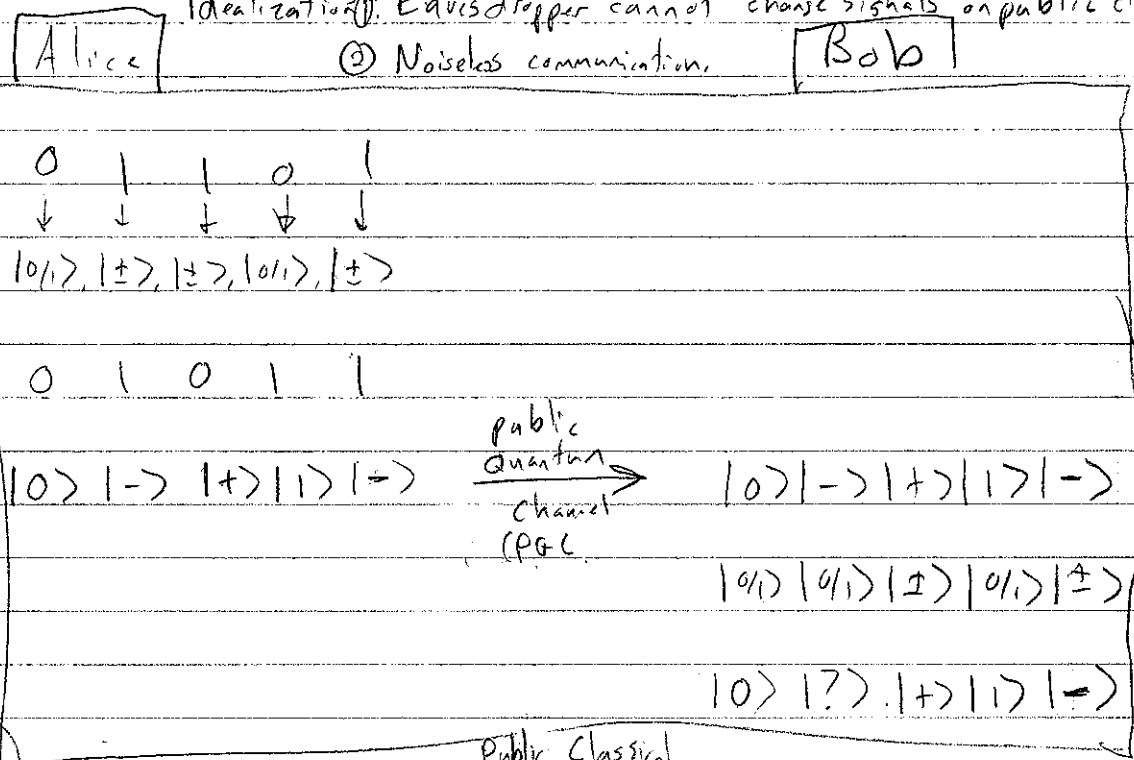 Idealization ①. Eavesdropper cannot change signals on public c
Alice ② Noiseless communication. Bob
0 1 1 0 1
↓ ↓ ↓ ↓ ↓
|0/1>, |±>, |±>, |0/1>, |±>
0 1 0 1 1
public
Quantum
|0> |-> |+> |1> |-> → |0> |-> |+> |1> |->
Channel
(PQC
|0/1> |0/1> |±> |0/1> |±>
|0> |?> |+> |1> |->
Public Classical